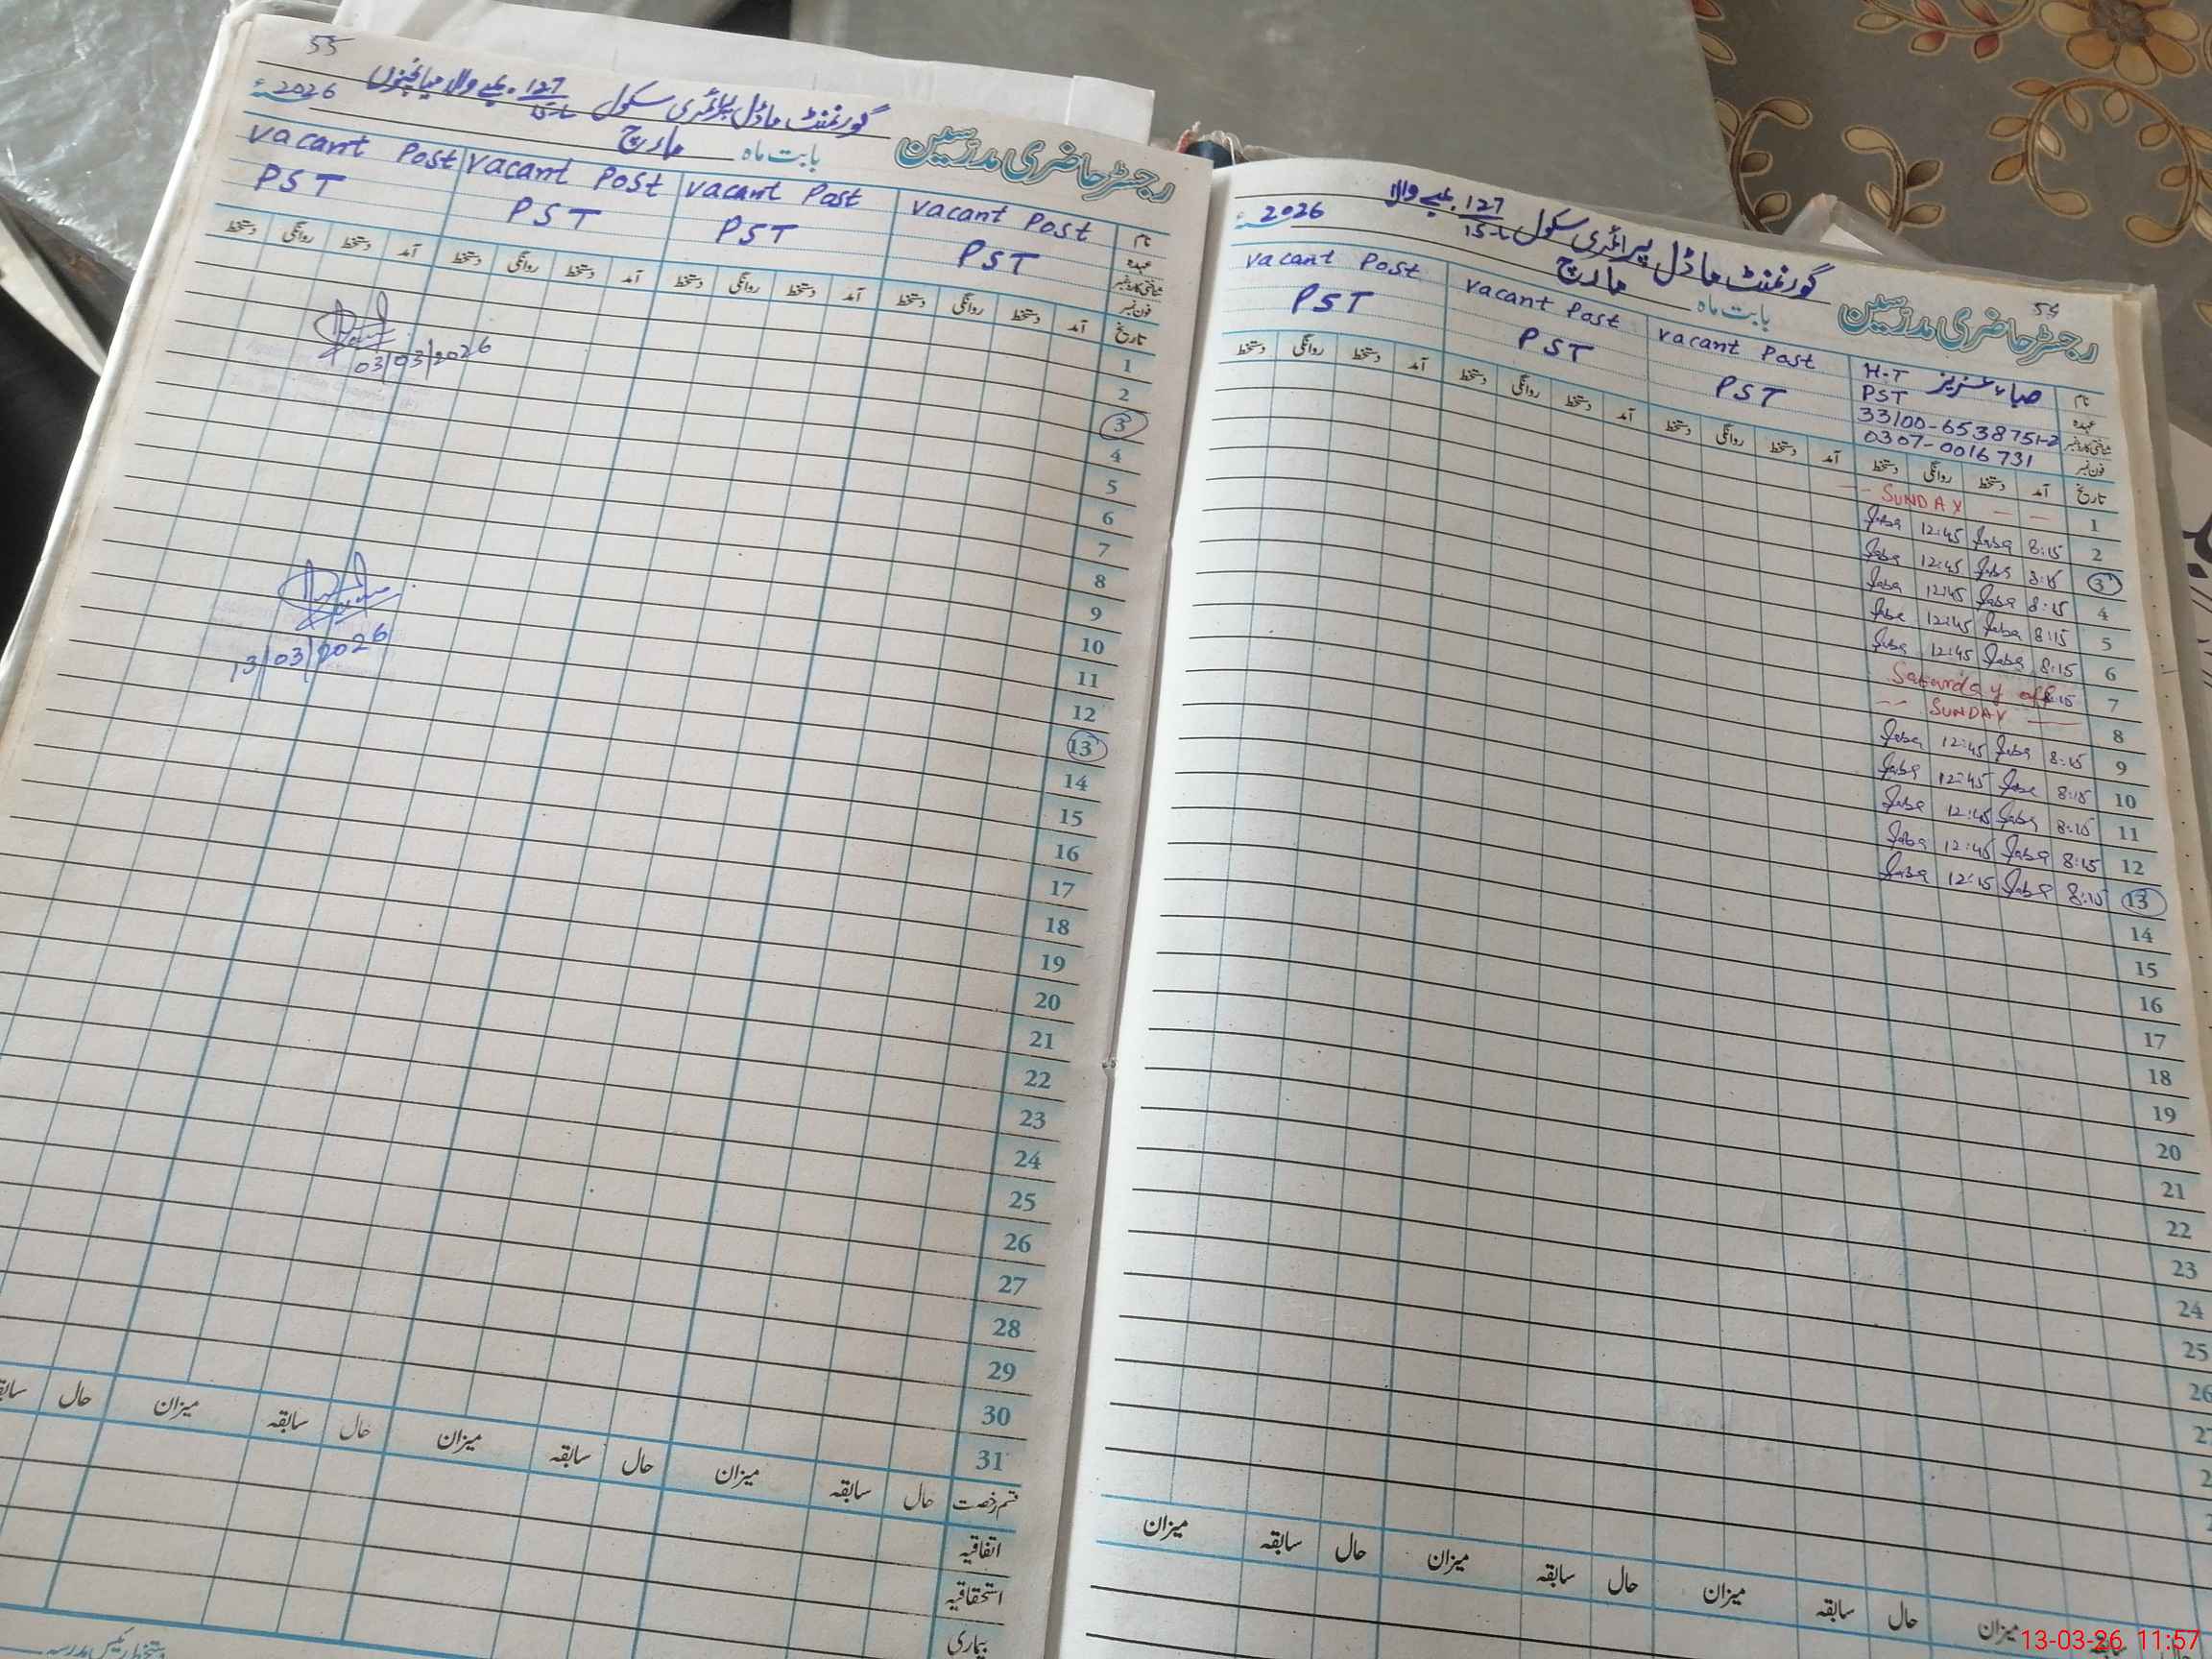 54
رجسٹر حاضری مدرسین
گورنمنٹ ماڈل پرائمری سکول 127/15-L
بابت ماہ مارچ 2026ء
نام صباء عزیز H.T vacant Post vacant Post vacant Post
عہدہ PST PST PST PST
شناختی کارڈ نمبر 33100-6538751-2
فون نمبر 0307-0016731
تاریخ آمد دستخط روانگی دستخط آمد دستخط روانگی دستخط آمد دستخط روانگی دستخط آمد دستخط روانگی دستخط
1 — — SUNDAY —
2 8:15 Saba 12:45 Saba
3 8:15 Saba 12:45 Saba
4 8:15 Saba 12:45 Saba
5 8:15 Saba 12:45 Saba
6 8:15 Saba 12:45 Saba
7 8:15 Saturday off
8 — SUNDAY --
9 8:15 Saba 12:45 Saba
10 8:15 Saba 12:45 Saba
11 8:15 Saba 12:45 Saba
12 8:15 Saba 12:45 Saba
13 8:15 Saba 12:15 Saba
14
15
16
17
18
19
20
21
22
23
24
25
26
میزان حال سابقہ میزان حال سابقہ میزان حال سابقہ میزان
55
رجسٹر حاضری مدرسین
گورنمنٹ ماڈل پرائمری سکول 127/15-L
بابت ماہ مارچ 2026ء
نام vacant Post vacant Post vacant Post vacant Post
عہدہ PST PST PST PST
شناختی کارڈ نمبر
فون نمبر
تاریخ آمد دستخط روانگی دستخط آمد دستخط روانگی دستخط آمد دستخط روانگی دستخط آمد دستخط روانگی دستخط
1
2
3 03/03/2026
4
5
6
7
8
9
10
11
12
13 13/03/2026
14
15
16
17
18
19
20
21
22
23
24
25
26
27
28
29
30
31
قسم رخصت حال سابقہ میزان حال سابقہ میزان حال سابقہ میزان حال
اتفاقیہ
استحقاقیہ
بیماری
13-03-26 11:57